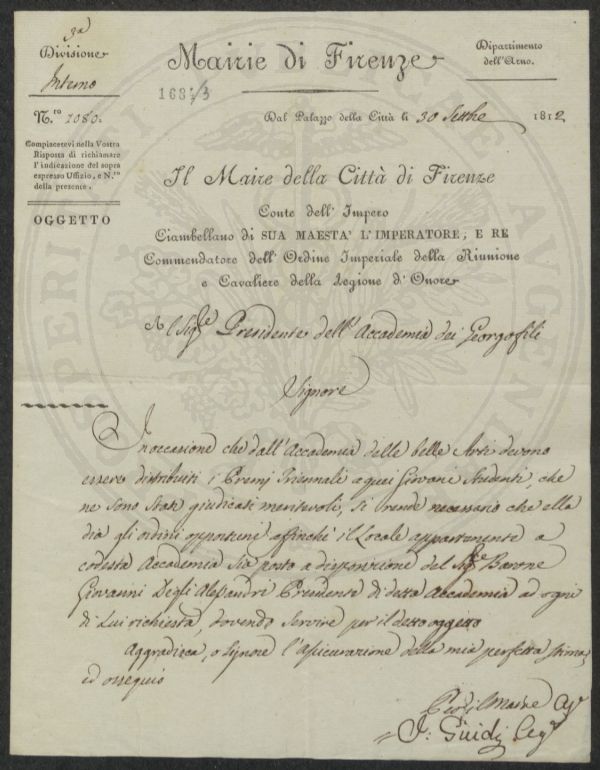 3a
Divisione
Interno
N.ro 1080.
Compiacetevi nella Vostra
Risposta di richiamare
l'indicazione del sopra
espresso Uffizio, e N.ro
della presente.
OGGETTO
Mairie di Firenze
168:/3
Dipartimento
dell'Arno.
Dal Palazzo della Città li 30 Settbe 1812
Il Maire della Città di Firenze
Conte dell' Impero
Ciambellano di SUA MAESTA' L'IMPERATORE, E RE
Commendatore dell' Ordine Imperiale della Riunione
e Cavaliere della Legione d' Onore
Al Sige Presidente dell'Accademia dei Georgofili
Signore
In occasione che dall'Accademia delle belle Arti devono
essere distribuiti i Premj Triennali a quei Giovani Studenti, che
ne sono stati giudicati meritevoli, si rende necessario che ella
dia gli ordini opportuni affinchè il Locale appartenente a
codesta Accademia sia posto a disposizione del Sige Barone
Giovanni Degli Alessandri Presidente di detta Accademia ad ogni
di Lui richiesta, dovendo servire per il detto oggetto
Aggradisca, o Signore l'assicurazione della mia perfetta stima,
ed ossequio
Per il Maire
Guidi